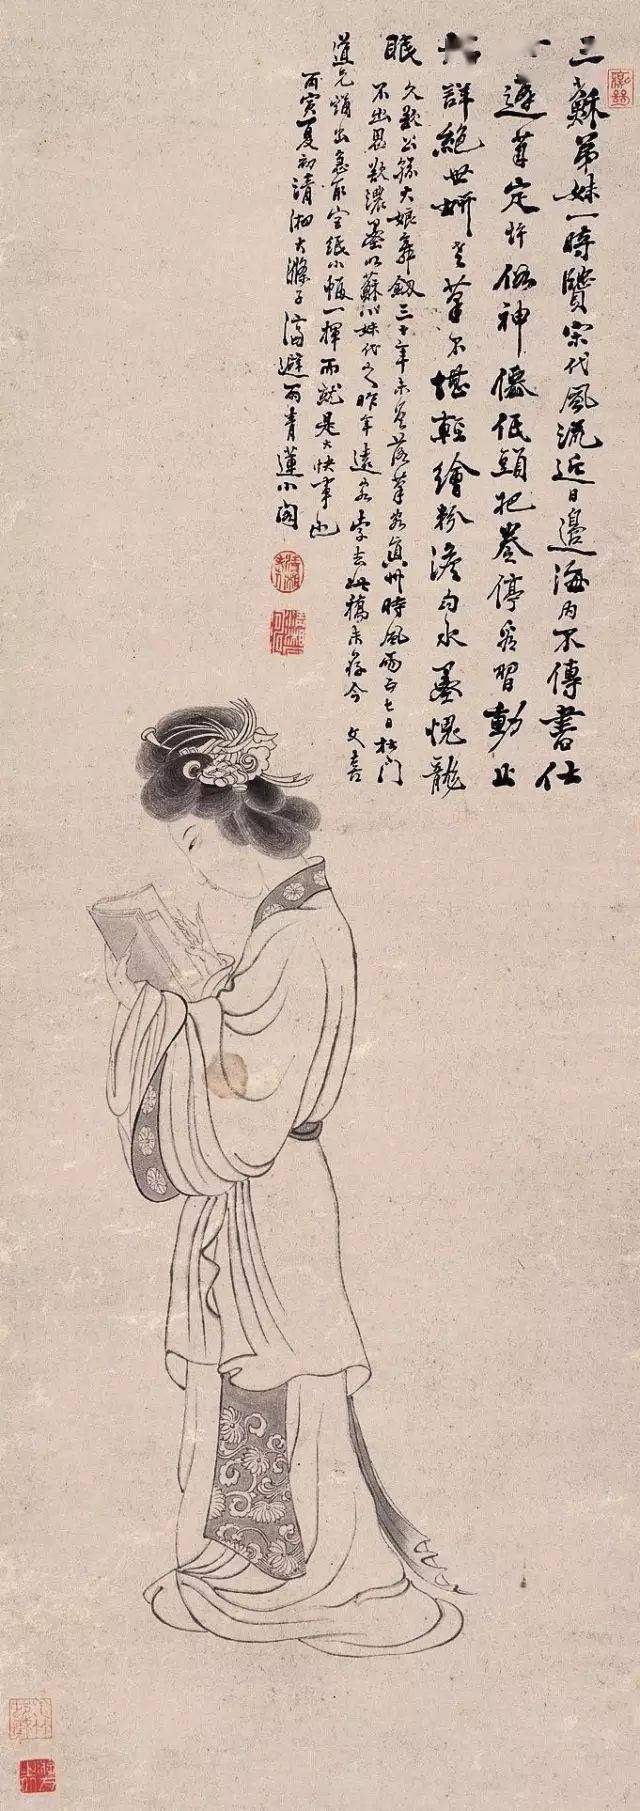 三蘇弟妹一時賢宋代風流近日邊海內不傳書仕
遲筆定許傍神僊低頭把卷停看習動止
詳絕世妍老筆不堪輕繪粉澹勻水墨愧龍
眠 久欲公孫大娘舞劍三十年未曾落筆客真州時風雨五七日杜門
不出思欲濃墨以蘇小妹代之昨年遠客索去此稿未存今 文喜
道兄請出急取空紙小幅一揮而就是大快事也
丙寅夏初清湘大滌子濟避雨青蓮小閣